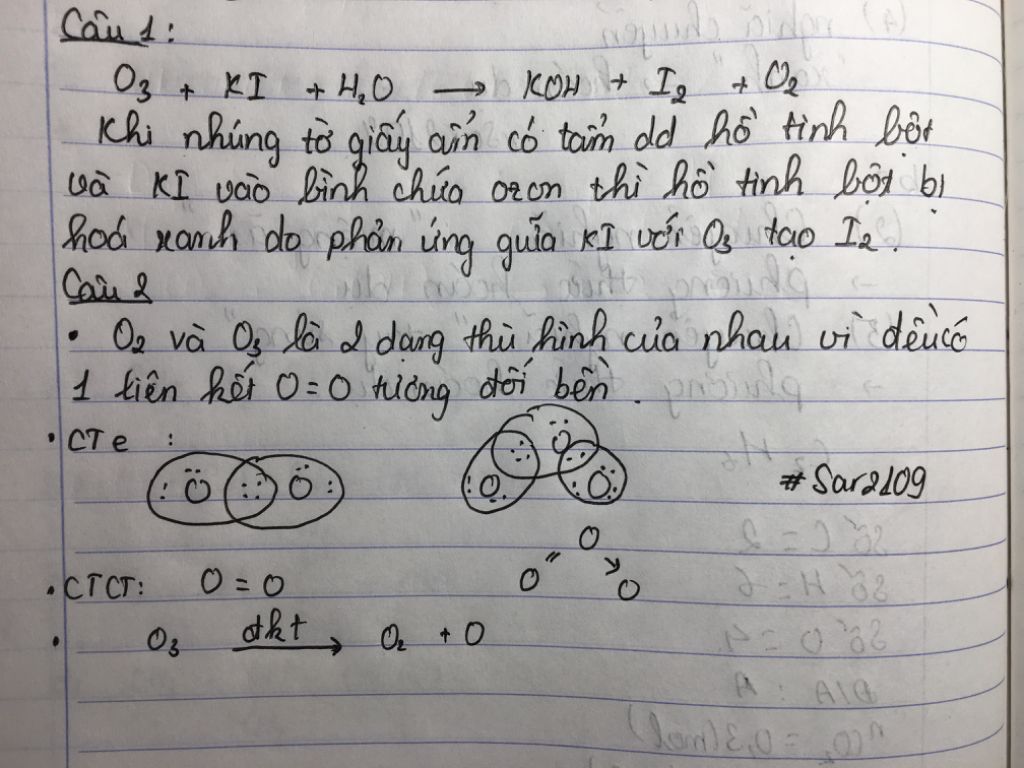 Câu 1:
O₃ + KI + H₂O → KOH + I₂ + O₂
Khi nhúng tờ giấy ẩm có tẩm dd hồ tinh bột
và KI vào bình chứa ozon thì hồ tinh bột bị
hoá xanh do phản ứng giữa KI với O₃ tạo I₂.
Câu 2
• O₂ và O₃ là 2 dạng thù hình của nhau vì đều có
1 liên kết O=O tương đối bền.
• CTe :
O O
O
O O
#Sar2109
• CTCT: O = O
O
O O
• O₃ đkt → O₂ + O